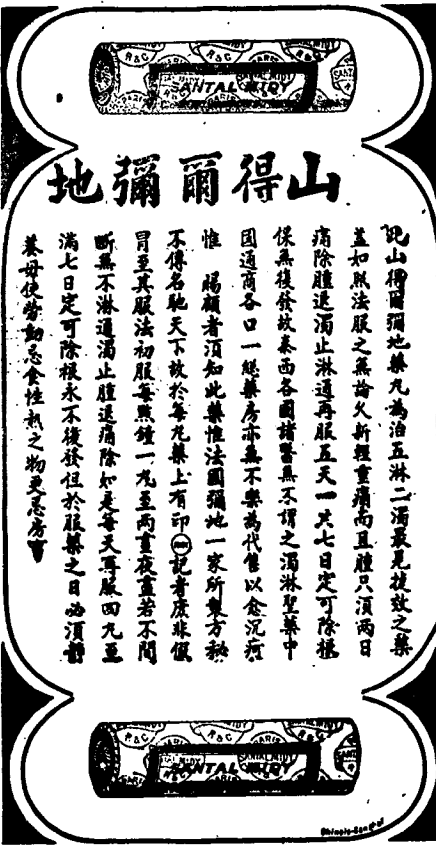 SANTAL MIDY
山得爾彌地
此山得爾彌地藥丸為治五淋二濁最見捷效之藥
蓋如照法服之無論久新輕重痛而且腫只須兩日
痛除腫退濁止淋通再服五天一共七日定可除根
保無後發故泰西各國諸醫無不謂之濁淋聖藥中
國通商各口一經藥房亦無不樂為代售以愈沉疴
惟 賜顧者須知此藥惟法國彌地一家所製方秘
不傳名馳天下故於每丸藥上有印記者庶非假
冒至其服法初服每點鐘一丸至兩晝夜蓋若不間
斷無不淋通濁止腫退痛除如是每天再服四丸至
滿七日定可除根永不復發但於服藥之日必須靜
養毋使勞動忌食性熱之物更忌房事
SANTAL MIDY